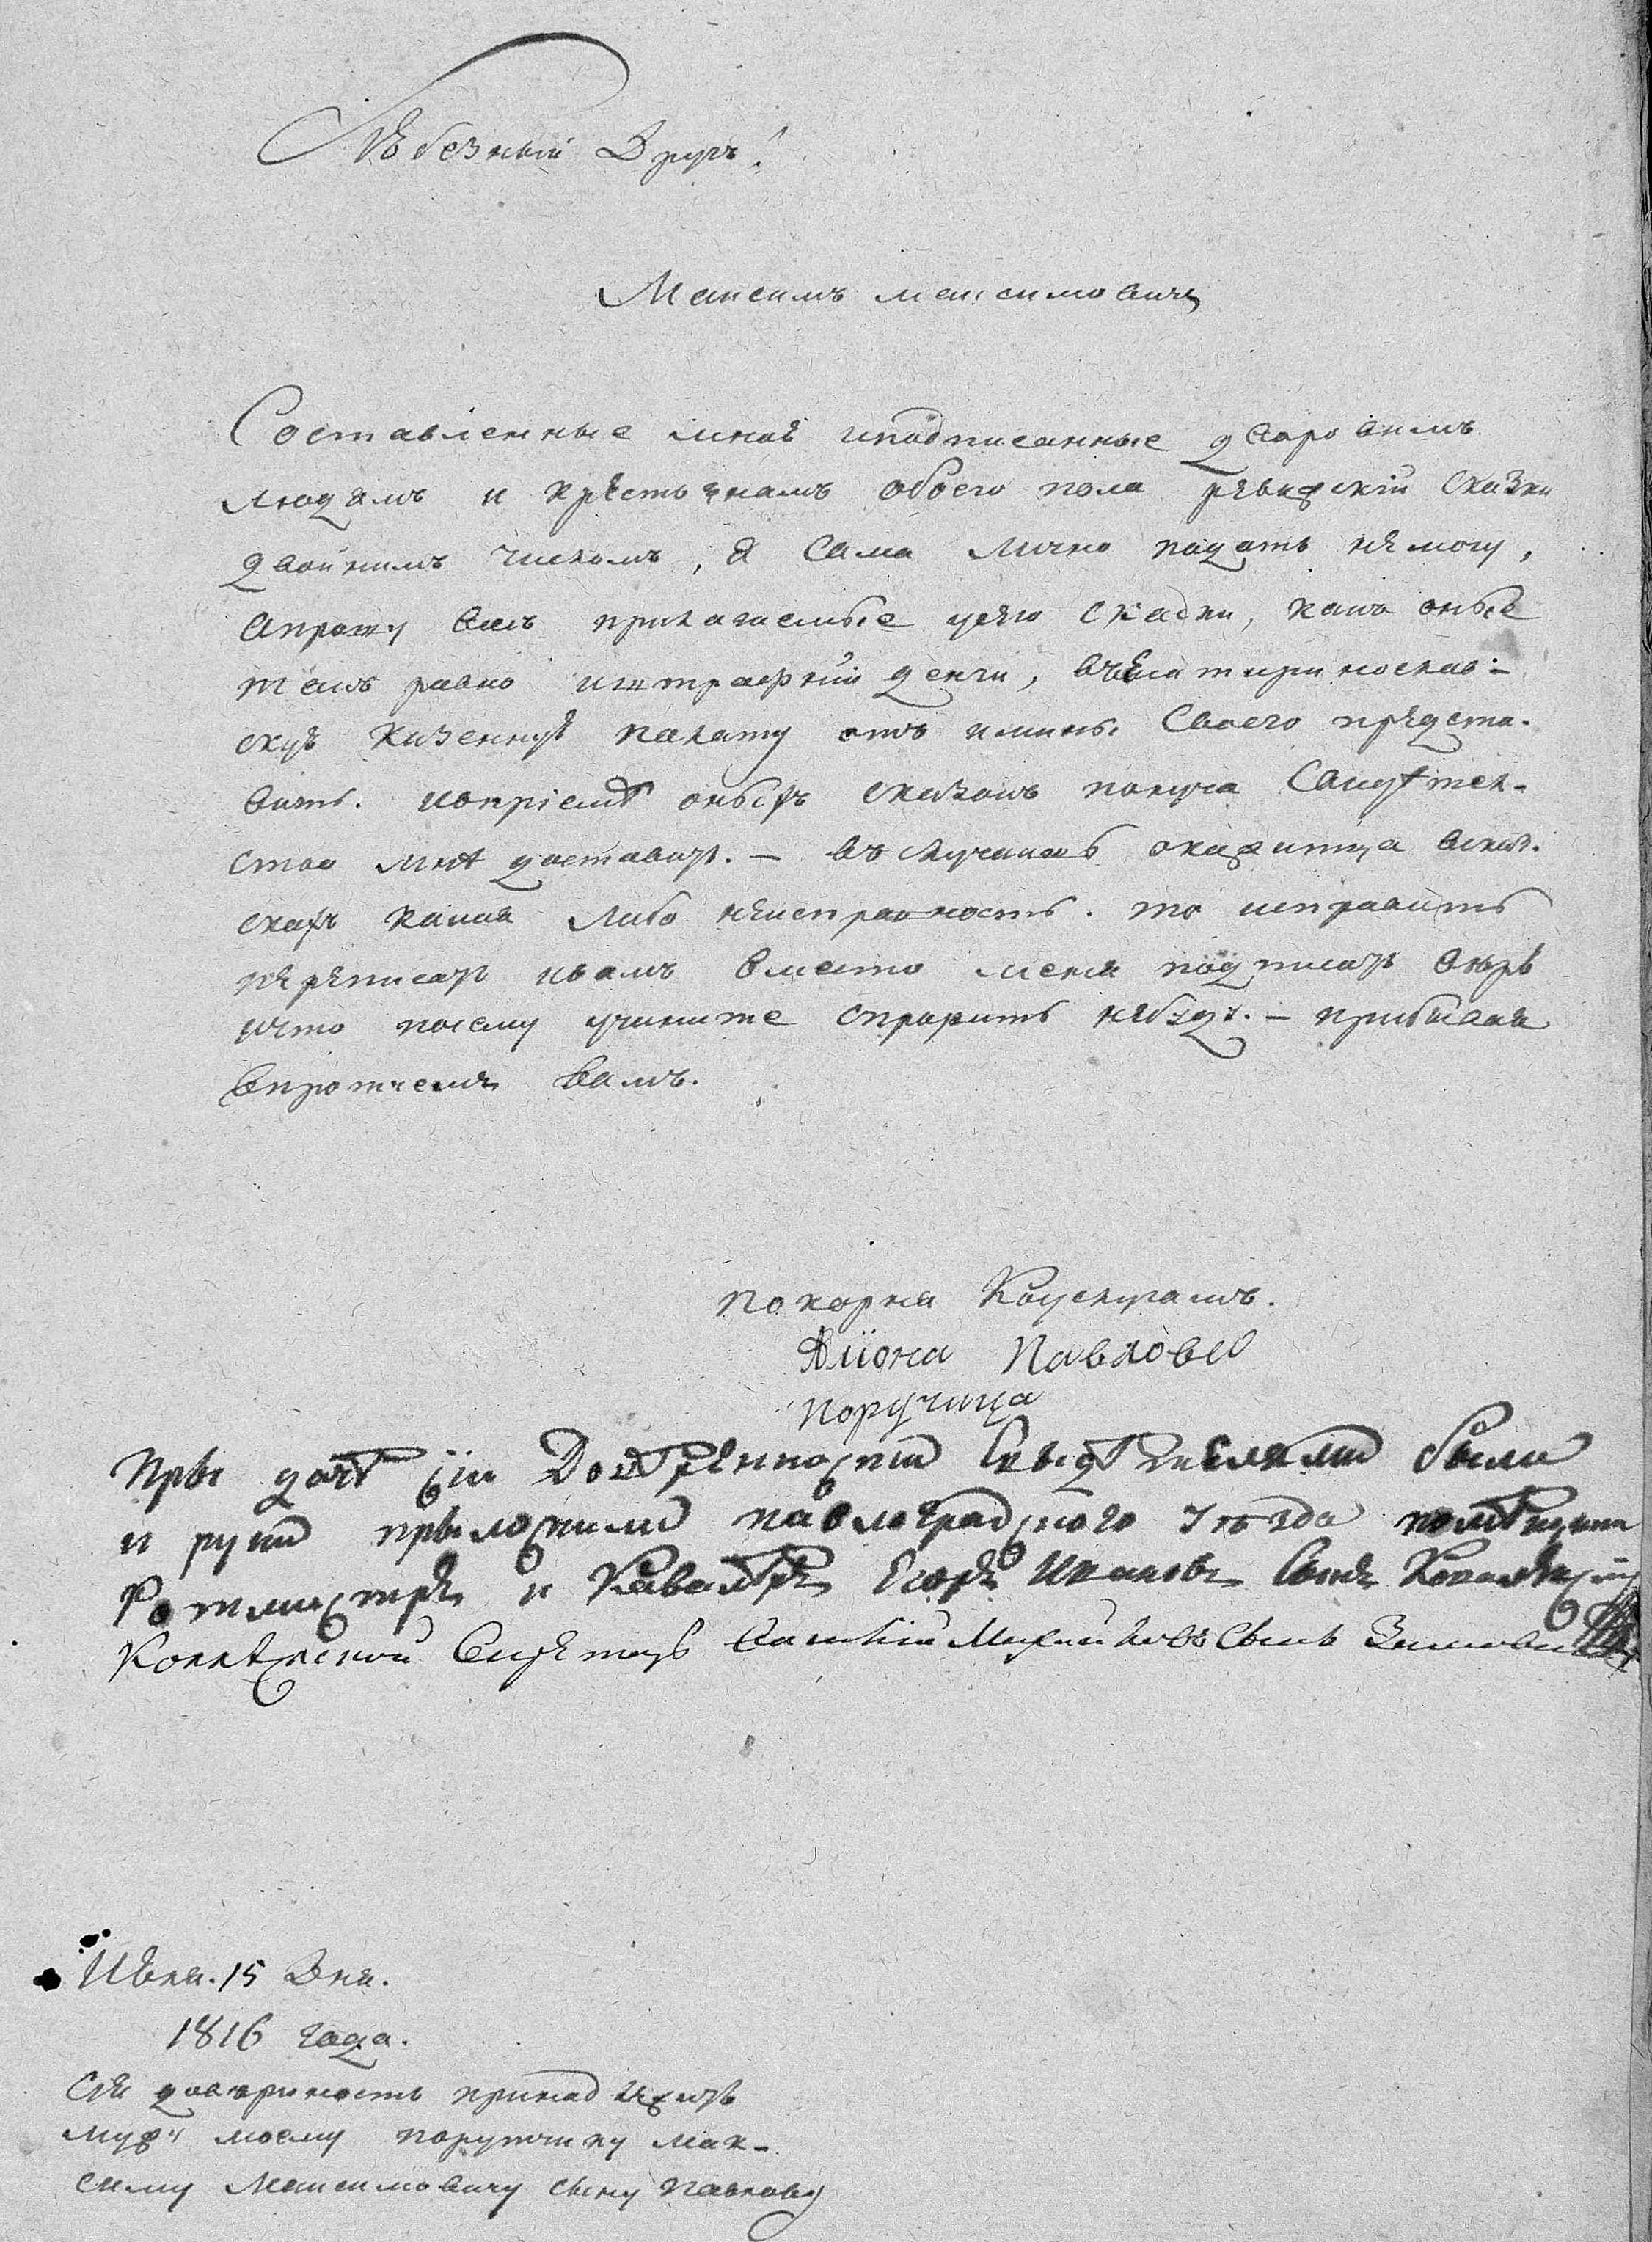 Любезный Другъ!
Максимъ максимовичъ
Составленные мною иподписанные дворовимъ
людямъ и крестьянамъ обоего пола ревижскій Сказки
двойнимъ числомъ, я Сама лично подать немогу,
апрошу васъ прилагаемые усего скаски, какъ оные
такъ равно иштрафнии денги, въЕкатиринослав:-
скую казенную палату отъ имины Своего предста-
вить. иопріемѣ оныхъ сказокъ получа Свидѣтел-
ство мнѣ доставить. – въ случаѣ окажитца вскас-
кахъ какая либо неисправность. то исправить
переписать ивамъ вместо меня подписать верю
ичто посему учините спорить небуду. – прибивая
впротчемъ вамъ.
покорная Коуслугамъ.
Аліона Павлова
Поручица
При дачѣ сіи Довѣренности Свыдѣтелями были
и руки приложили павлоградского уѣзда помѣщики
Ротмистръ и Кавалѣръ Егоръ Ивановъ Сынъ Ковалевскій
Колежской Секретарь Михайловъ Сынъ
Июня. 15 Дня.
1816 года.
Сия доверинность принадлежитъ
мужу моему порутчику мак-
симу Максимовичу сыну павлову